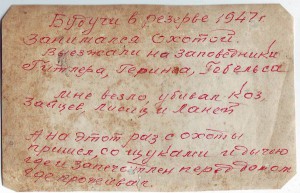 Будучи в резерве 1947 г
Занимался охотой.
Выезжали на заповедники
Гитлера, Геринга, Гебельса.
Мне везло, убивал Коз,
Зайцев Лисиц и Ланей
А на этот раз с охоты
пришел со щуками
где и запечетлен перед домом
где проживал.